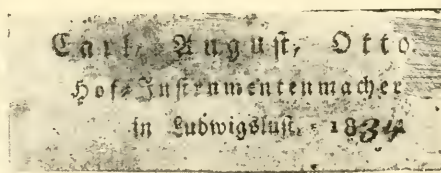 Carl, August, Otto
Hof=Instrumentenmacher
in Ludwigslust, 1834